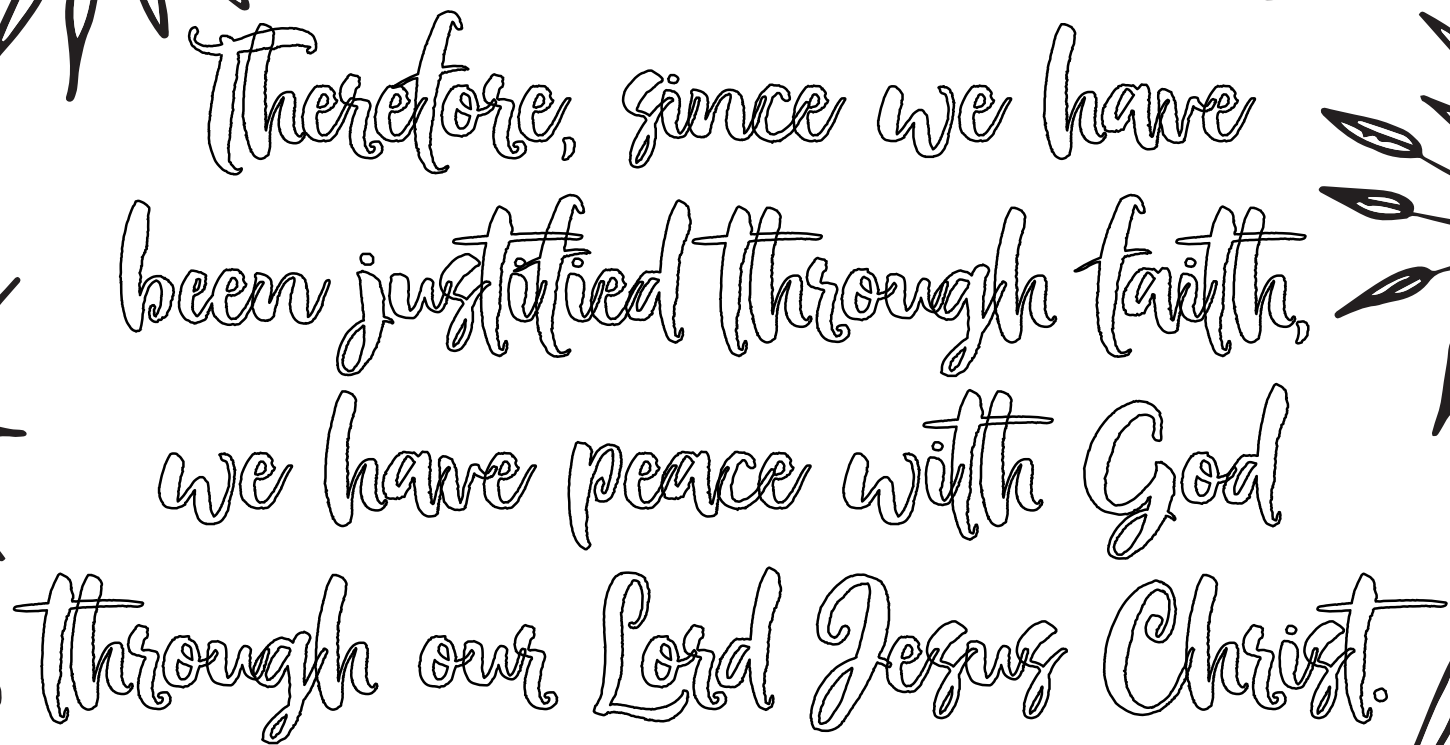 Therefore, since we have
been justified through faith,
we have peace with God
through our Lord Jesus Christ.